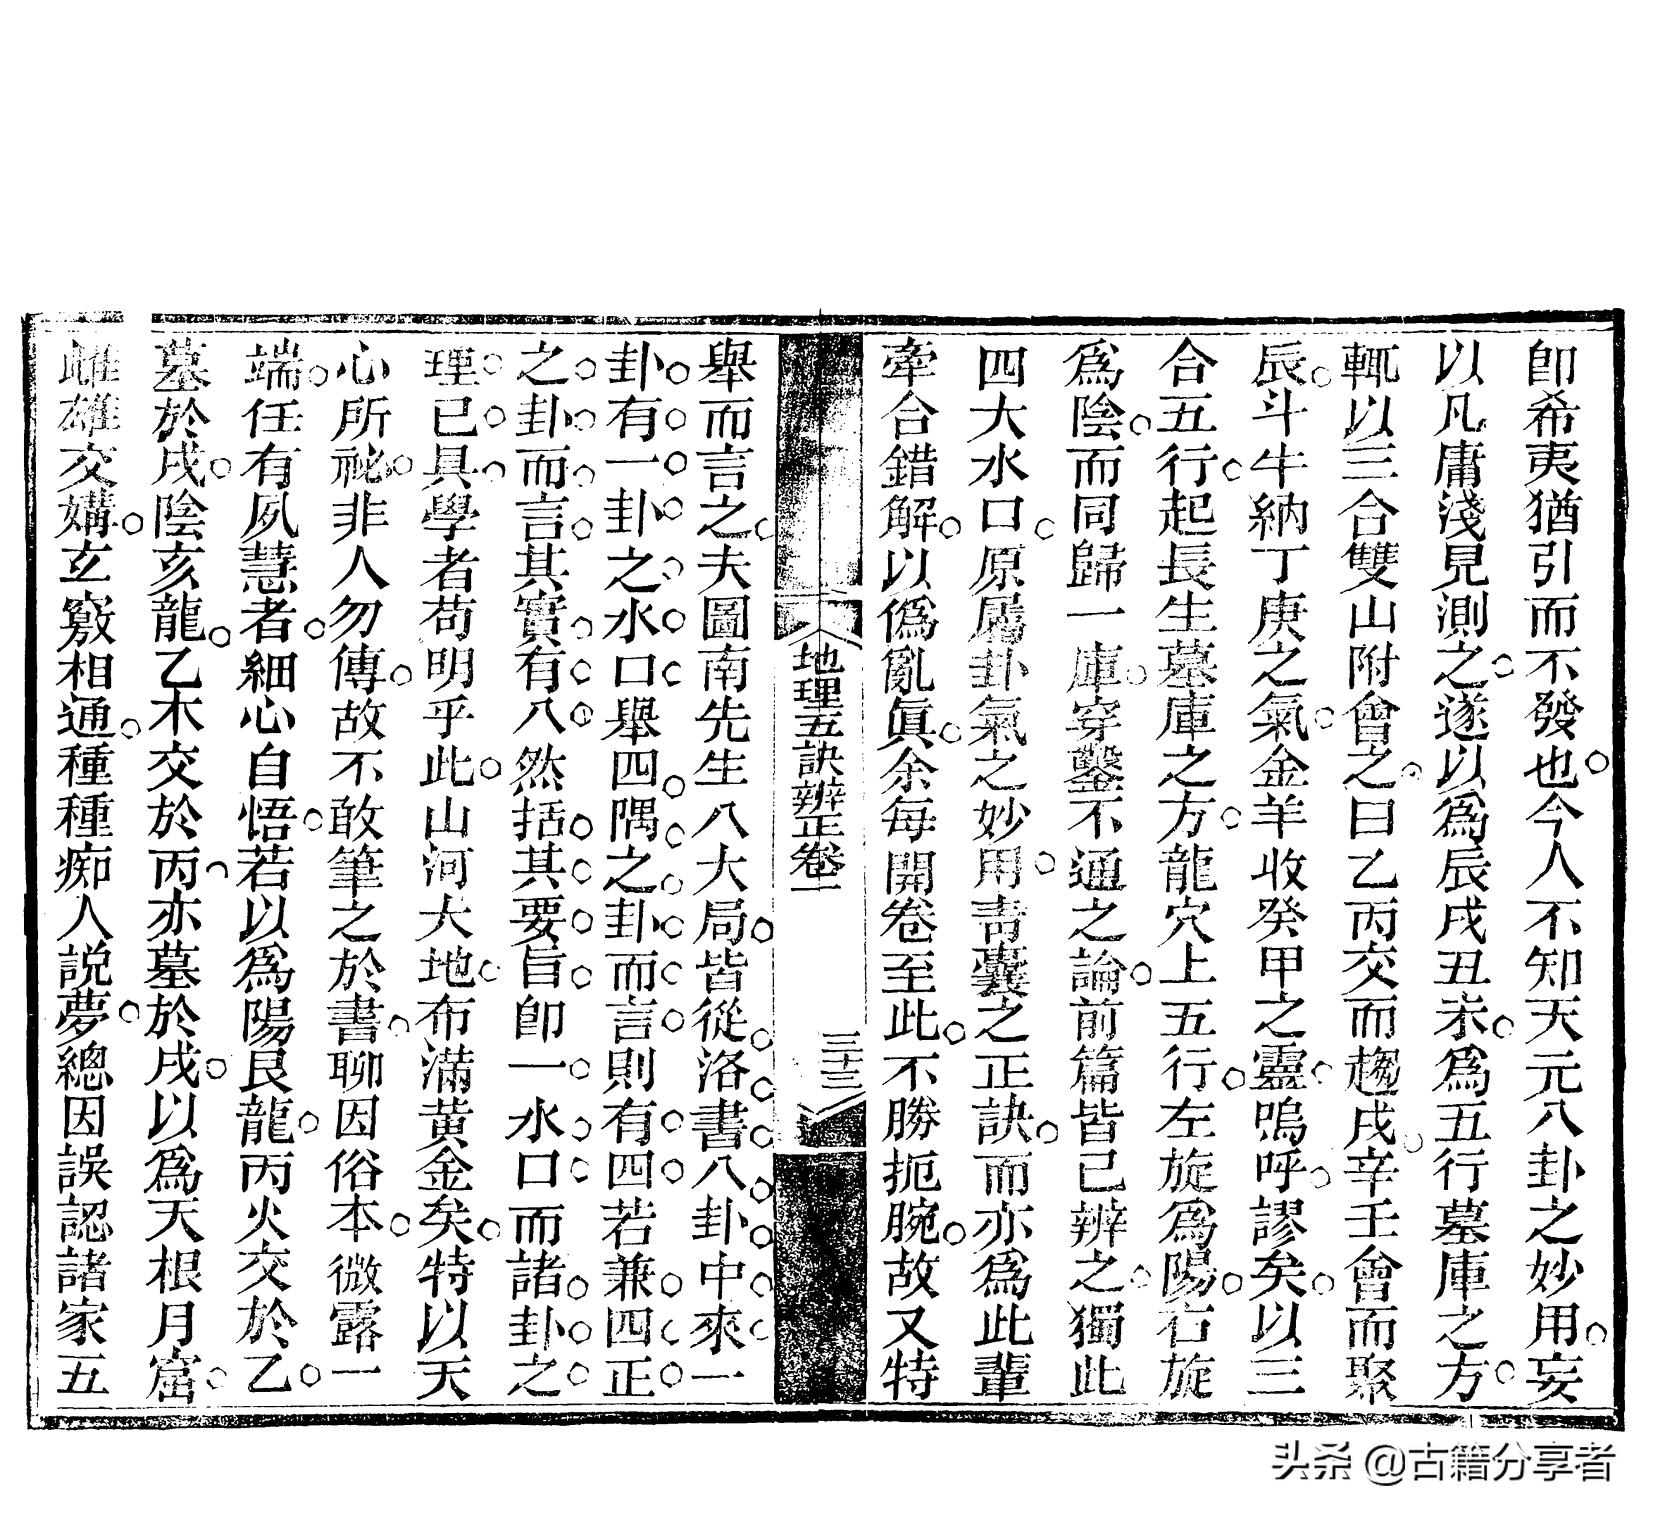 卽希夷猶引而不發也今人不知天元八卦之妙用妄
以凡庸淺見測之遂以爲辰戌丑未爲五行墓庫之方
輒以三合雙山附會之曰乙丙交而趨戌辛壬會而聚
辰斗牛納丁庚之氣金羊收癸甲之靈嗚呼謬矣以三
合五行起長生墓庫之方龍穴上五行左旋爲陽右旋
爲陰而同歸一庫穿鑿不通之論前篇皆已辨之獨此
四大水口原屬卦氣之妙用靑囊之正訣而亦爲此輩
牽合錯解以僞亂眞余每開卷至此不勝扼腕故又特
地理五訣辨正卷一
三十三
舉而言之夫圖南先生八大局皆從洛書八卦中來一
卦有一卦之水口舉四隅之卦而言則有四若兼四正
之卦而言其實有八然括其要旨卽一水口而諸卦之
理已具學者苟明乎此山河大地布滿黄金矣特以天
心所祕非人勿傳故不敢筆之於書聊因俗本微露一
端任有夙慧者細心自悟若以爲陽艮龍丙火交於乙
墓於戌陰亥龍乙木交於丙亦墓於戌以爲天根月窟
雌雄交媾玄竅相通種種痴人説夢總因誤認諸家五
头条 @古籍分享者